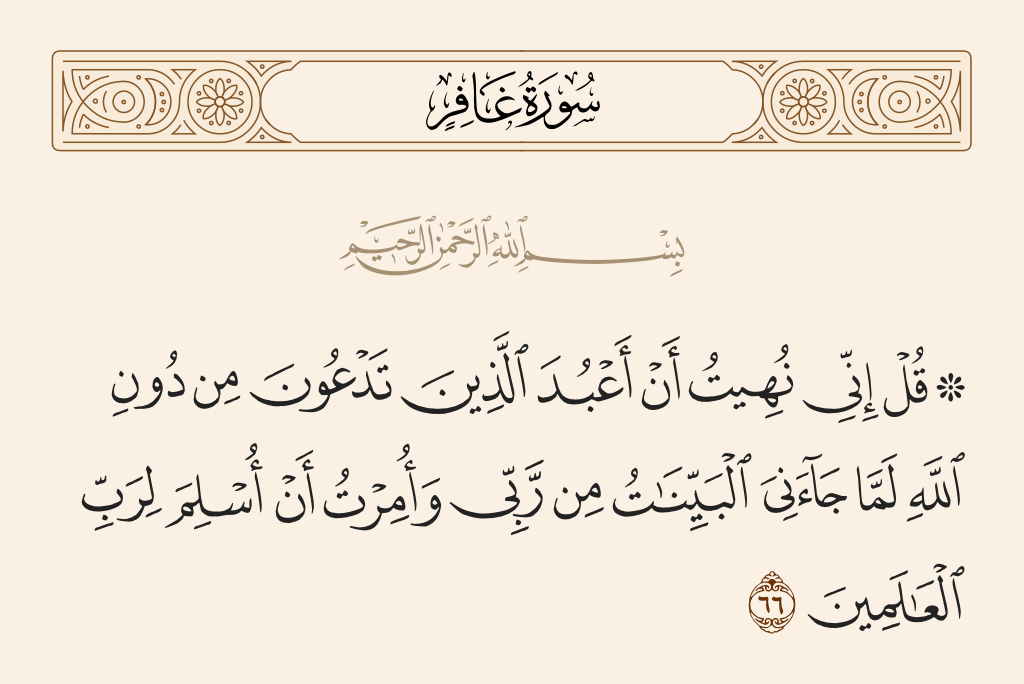 سُورَةُ غَافِرٍ
بِسْمِ ٱللَّهِ ٱلرَّحْمَٰنِ ٱلرَّحِيمِ
۞ قُلْ إِنِّى نُهِيتُ أَنْ أَعْبُدَ ٱلَّذِينَ تَدْعُونَ مِن دُونِ
ٱللَّهِ لَمَّا جَآءَنِىَ ٱلْبَيِّنَـٰتُ مِن رَّبِّى وَأُمِرْتُ أَنْ أُسْلِمَ لِرَبِّ
ٱلْعَـٰلَمِينَ ٦٦